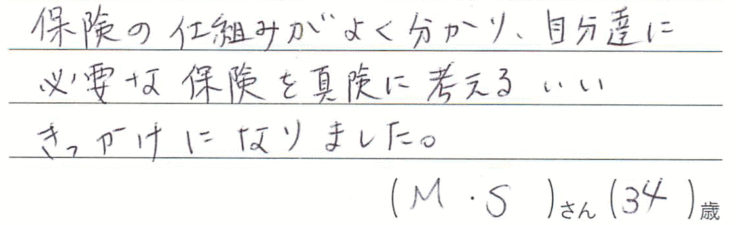 保険の仕組みがよく分かり、自分達に
必要な保険を真険に考えるいい
きっかけになりました。
(M・S)さん(34)歳